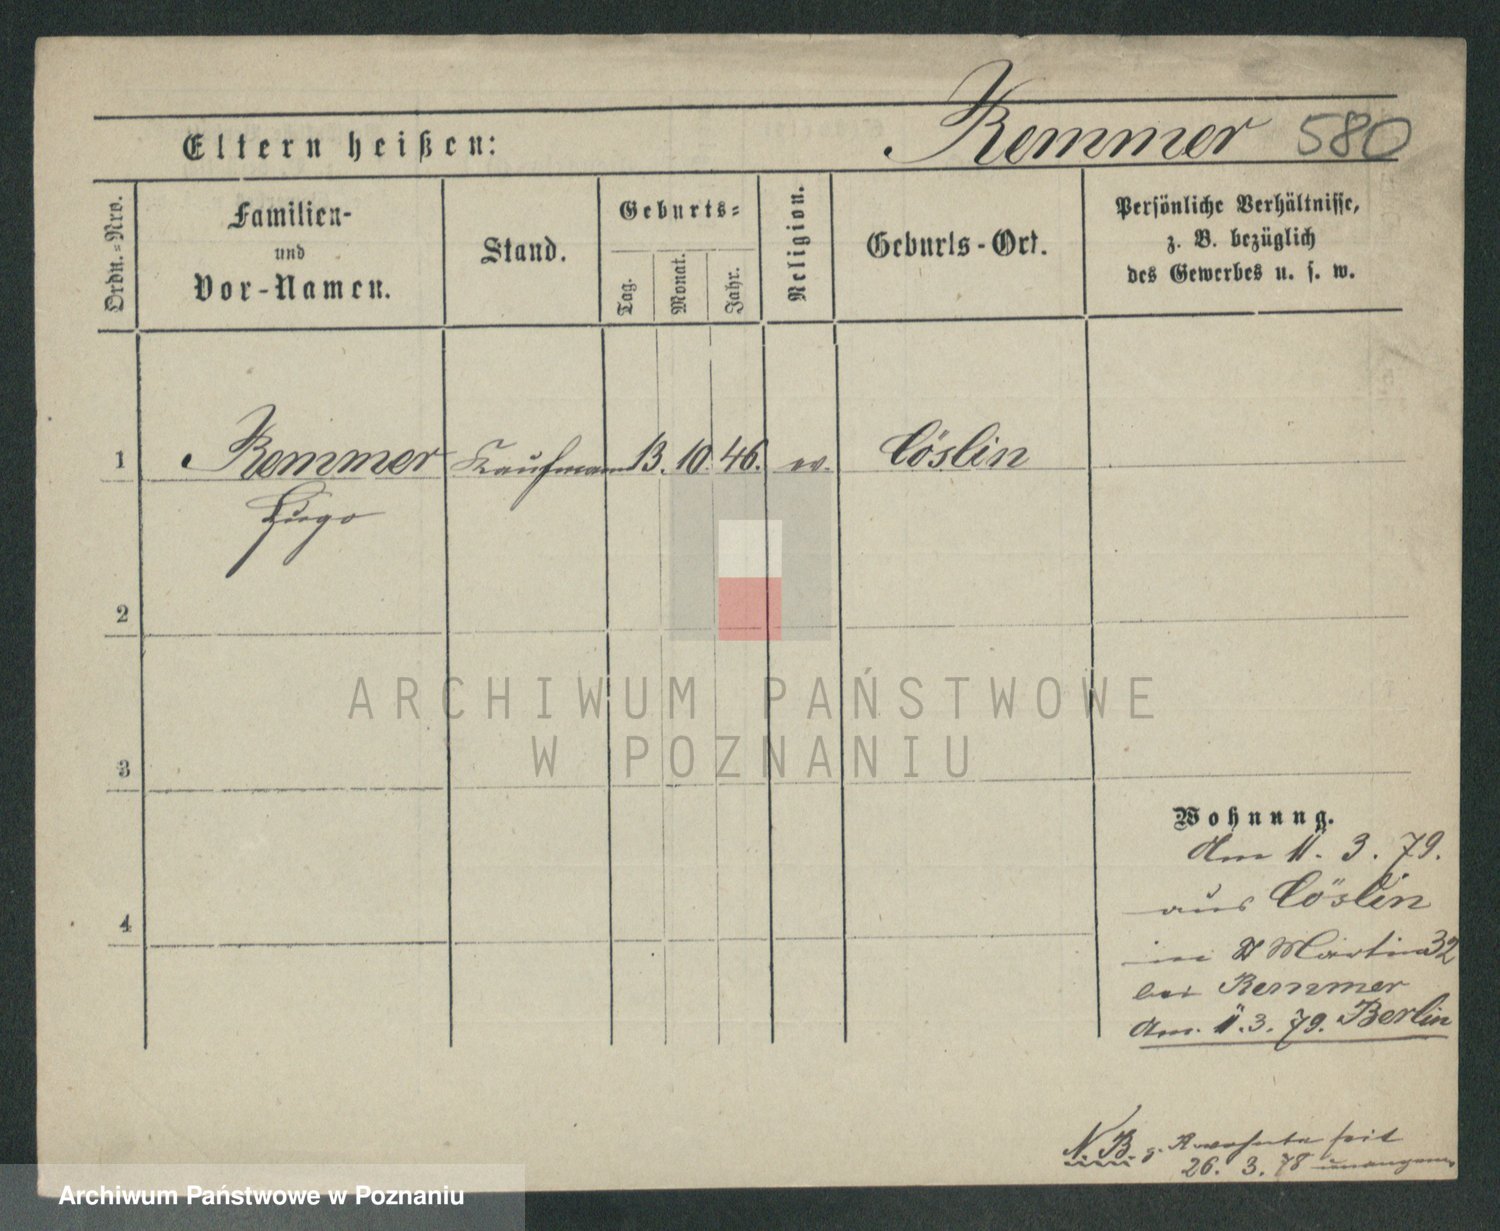 Eltern heißen: Remmer 580
Ordn.-Nro.
Familien-
und
Vor-Namen.
Stand.
Geburts-
Tag.
Monat.
Jahr.
Religion.
Geburts-Ort.
Persönliche Verhältnisse,
z. B. bezüglich
des Gewerbes u. s. w.
1 Remmer Kaufmann 13. 10. 46. ev. Cöslin
Hugo
2
3
4
Wohnung.
Am 11. 3. 79.
aus Cöslin
in St Martin 32
bei Remmer
Am 11. 3. 79. Berlin
N. B. seit
26. 3. 78
ARCHIWUM PAŃSTWOWE
W POZNANIU
Archiwum Państwowe w Poznaniu